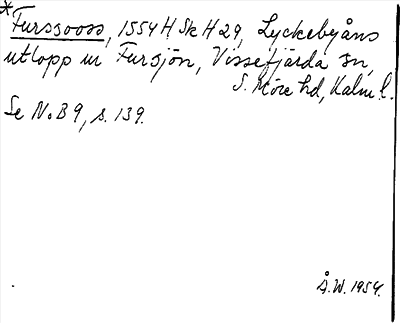 *Furssooss, 1554 H Sk H 29, Lyckebyåns
utlopp ur Fursjön, Vissefjärda sn,
S. Möre hd, Kalm l.
Se NoB 9, s. 139.
Å.W. 1954.